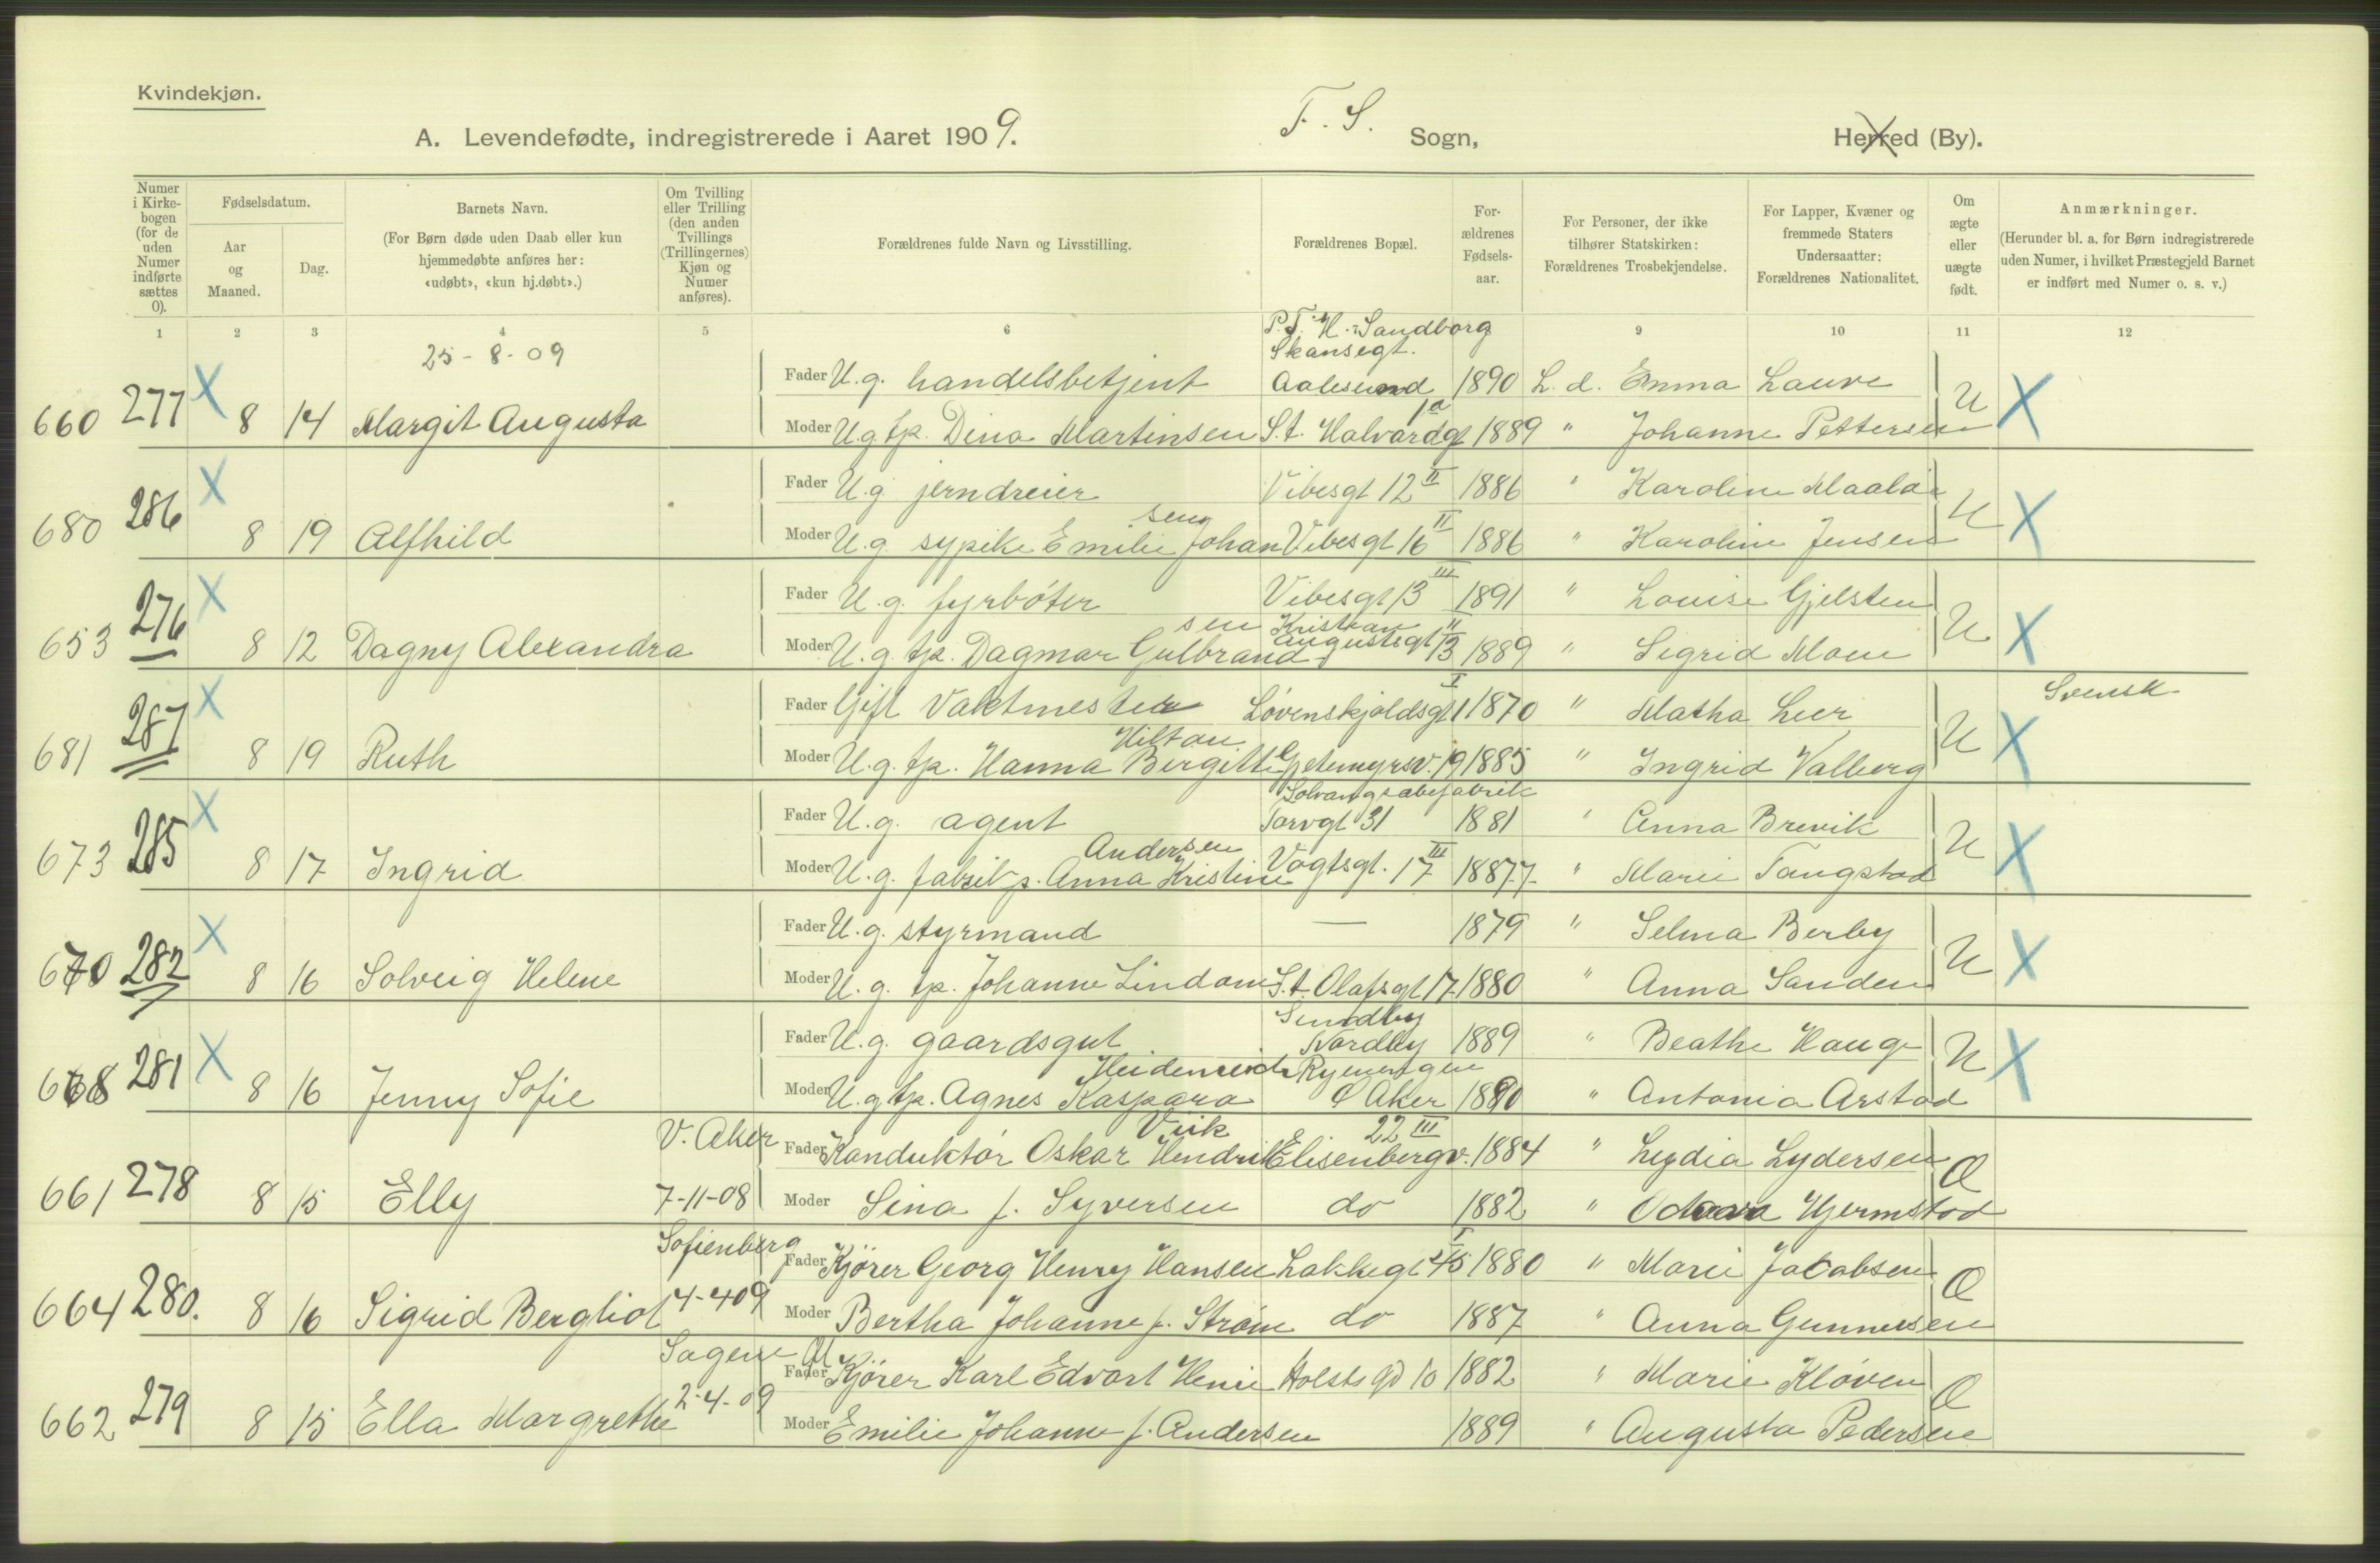 Kvindekjøn.
A. Levendefødte, indregistrerede i Aaret 1909.
F. S. Sogn,
Herred (By).
Numer i Kirke-bogen (for de uden Numer indførte sættes 0).
Fødselsdatum.
Aar og Maaned.
Dag.
Barnets Navn.
(For Børn døde uden Daab eller kun hjemmedøbte anføres her: «udøbt», «kun hj.døbt».)
Om Tvilling eller Trilling (den anden Tvillings (Trillingernes) Kjøn og Numer anføres).
Forældrenes fulde Navn og Livsstilling.
Forældrenes Bopæl.
For-ældrenes Fødsels-aar.
For Personer, der ikke tilhører Statskirken: Forældrenes Trosbekjendelse.
For Lapper, Kvæner og fremmede Staters Undersaatter: Forældrenes Nationalitet.
Om ægte eller uægte født.
Anmærkninger.
(Herunder bl. a. for Børn indregistrerede uden Numer, i hvilket Præstegjeld Barnet er indført med Numer o. s. v.)
1 2 3 4 5 6 9 10 11 12
25-8-09
P.T. H. Sandborg
Skansegt.
Fader U.g. handelsbetjent Aalesund 1890 L. d. Emma Lauve
660 277 X 8 14 Margit Augusta Moder U.g. tp. Dina Martinsen St. Halvardgt 1a 1889 " Johanne Pettersen U X
Fader U.g. jerndreier Vibesgt 12 II 1886 " Karoline
680 286 X 8 19 Alfhild Moder U.g. sypike Emilie Johansen Vibesgt 16 II 1886 " Karoline Jensen U X
Fader U.g. fyrbøter Vibesgt 13 III 1891 " Louise Gjelsten
653 276 X 8 12 Dagny Alexandra Moder U.g. tp. Dagmar Gulbrandsen Kristian Augustsgt 13 II 1889 " Sigrid Moen U X
Fader Gift Vaktmester Løvenskjoldsgt 1 I 1870 " Matha Leer Svensk
681 287 X 8 19 Ruth Moder U.g. tp. Hanna Birgitte Hiltan Gjetemyrsv. 19 1885 " Ingrid Valberg U X
Fader U.g. agent Torvgt 31 1881 " Anna Brevik
673 285 X 8 17 Ingrid Moder U.g. fabrikp. Anna Kristine Andersen Vogtsgt. 17 III 1887 " Marie Tangstad U X
Fader U.g. styrmand — 1879 " Selma Berby
670 282 X 8 16 Solveig Helene Moder U.g. tp. Johanne Lindam St. Olafsgt 17 1880 " Anna Sanden U X
Fader U.g. gaardsgut Sundby Nordby 1889 " Beathe Hauge
668 281 X 8 16 Jenny Sofie Moder U.g. tp. Agnes Kaspara Ø Aker 1890 " Antonia Arstad U X
V. Aker Fader Konduktør Oskar Hendrik Viik Elisenbergv. 22 III 1884 " Lydia Lydersen
661 278 8 15 Elly 7-11-08 Moder Sina f. Syversen do 1882 " Hjermstad Æ
Sofienberg Fader Kjører Georg Henry Hansen Lakkegt 45 I 1880 " Marie Jacobsen
664 280. 8 16 Sigrid Bergliot 4-4 09 Moder Bertha Johanne f. Strøm do 1887 " Anna Gunnersen Æ
Sagene Fader Kjører Karl Edvart Henie Holstsgd 10 1882 " Marie Kløven
662 279 8 15 Ella Margrethe 2-4-09 Moder Emilie Johanne f. Andersen 1889 " Augusta Pedersen Æ